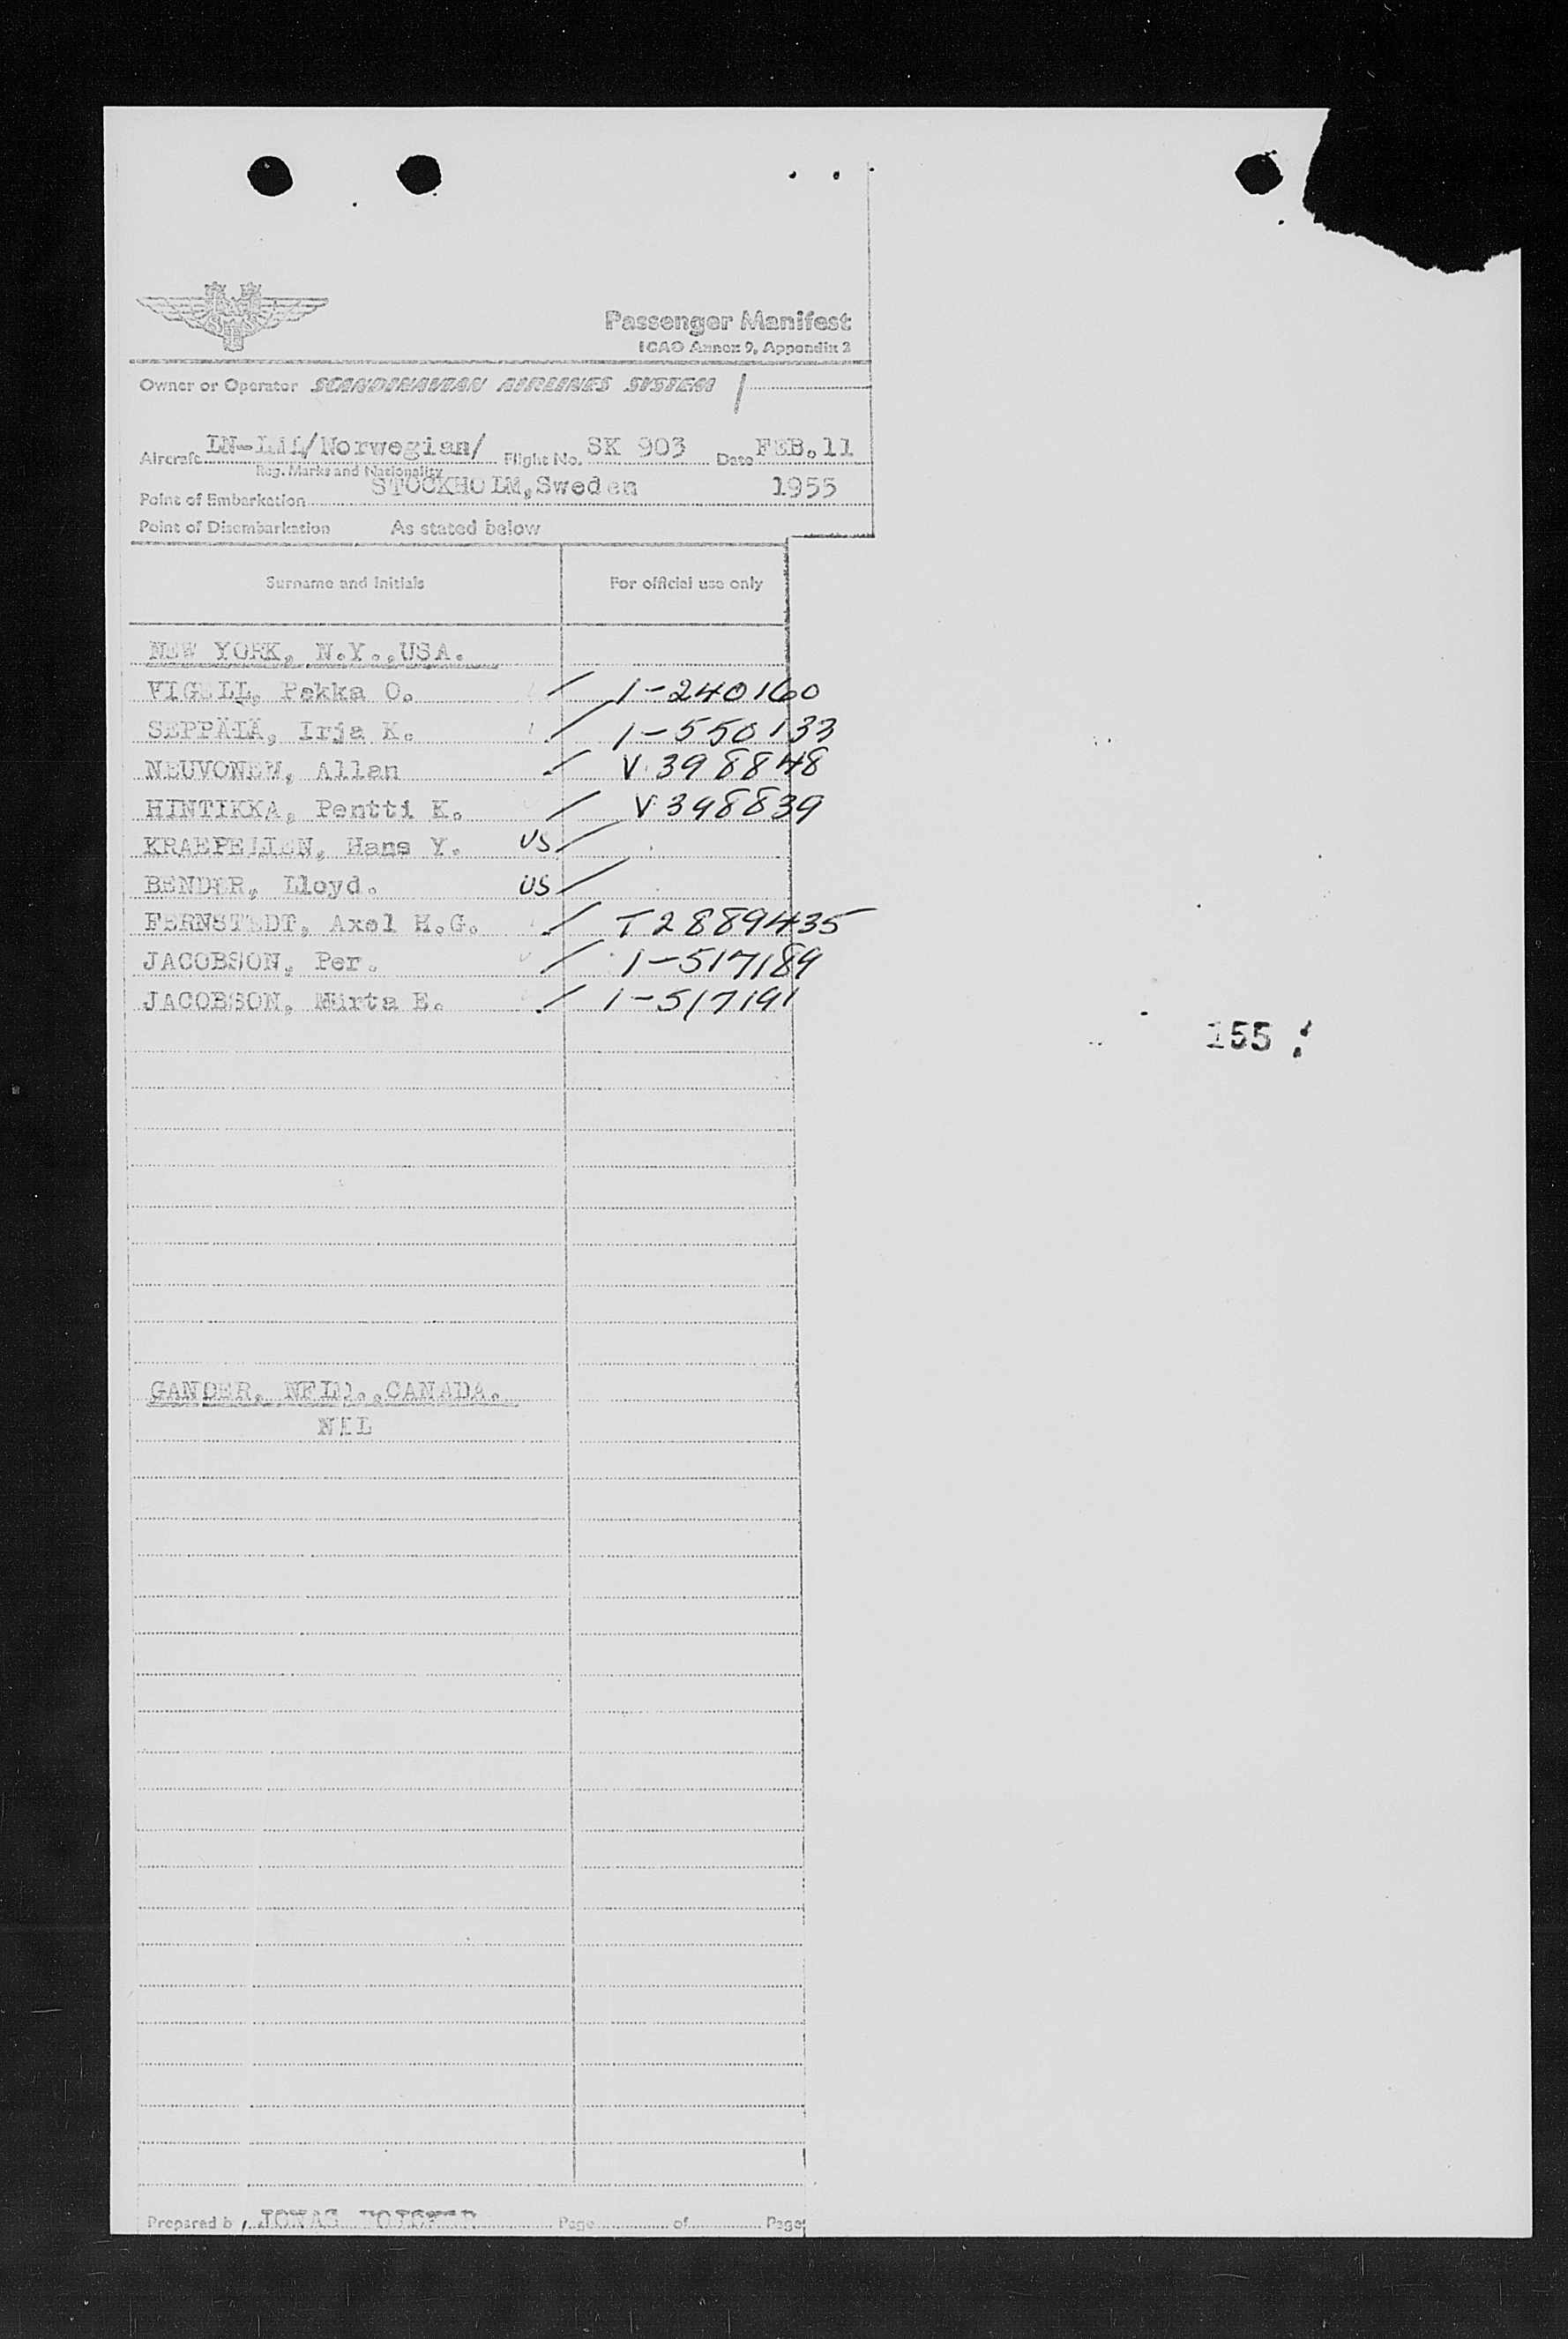 Passenger Manifest
ICAO Annex 9, Appendix 2
Owner or Operator SCANDINAVIAN AIRLINES SYSTEM /
Aircraft /Norwegian/ Flight No. SK 903 Date FEB.11
Reg. Marks and Nationality
Point of Embarkation STOCKHOLM,Sweden 1955
Point of Disembarkation As stated below
Surname and Initials For official use only
NEW YORK, N.Y.,USA.
Pekka O. / 1-240160
SEPPÄLÄ, Irja K. / 1-550133
NEUVONEN, Allan / V 398848
HINTIKKA, Pentti K. / V 398839
KRAEPELIEN, Hans Y. US /
BENDER, Lloyd. US /
FERNSTEDT, Axel H.G. / T 2889435
JACOBSON, Per. / 1-517189
JACOBSON, Märta E. / 1-517191
155
GANDER, NFLD.,CANADA.
NIL
Prepared b JONAS Page of Page